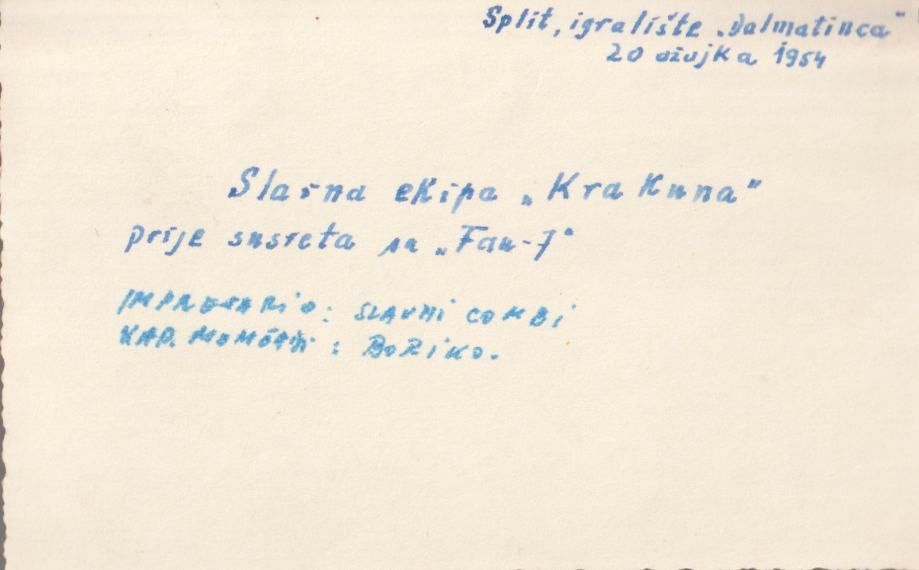 Split, igralište „Dalmatinca"
20 ožujka 1954
Slavna ekipa „Krakuna"
prije susreta sa „Fau-7"
IMPRESARIO: SLAVNI COMBI
KAP. MOMČADI: BORIKO.